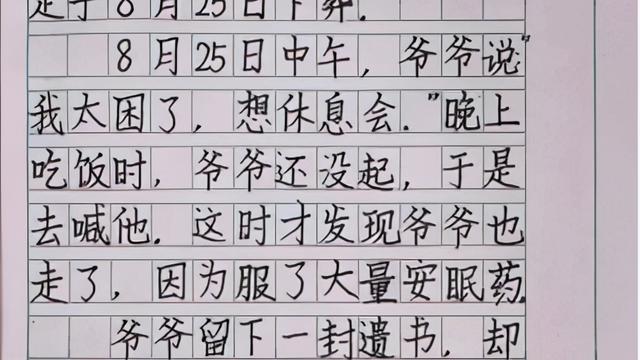 定于8月25日下葬.
8月25日中午，爷爷说“
我太困了，想休息会.”晚上
吃饭时，爷爷还没起，于是
去喊他.这时才发现爷爷也
走了，因为服了大量安眠药.
爷爷留下一封遗书，却